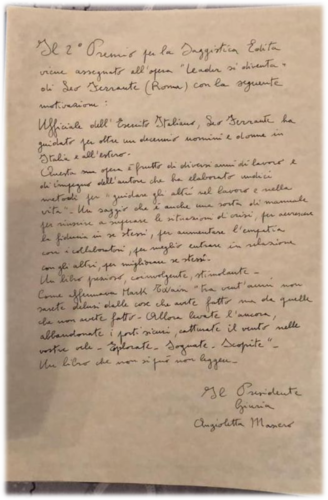 Il 2° Premio per la Saggistica Edita
viene assegnato all'opera "Leader si diventa"
di Leo Ferrante (Roma) con la seguente
motivazione:
Ufficiale dell'Esercito Italiano, Leo Ferrante ha
guidato per oltre un decennio uomini e donne in
Italia e all'estero.
Questa sua opera è frutto di diversi anni di lavoro e
di impegno dell'autore che ha elaborato undici
metodi per "guidare gli altri nel lavoro e nella
vita". Un saggio che è anche una sorta di manuale
per riuscire a superare le situazioni di crisi, per accrescere
la fiducia in se stessi, per aumentare l'empatia
con i collaboratori, per meglio entrare in relazione
con gli altri, per migliorare se stessi.
Un libro prezioso, coinvolgente, stimolante -
Come affermava Mark Twain "tra vent'anni non
sarete delusi dalle cose che avete fatto ma da quelle
che non avete fatto - Allora levate l'ancora,
abbandonate i porti sicuri, catturate il vento nelle
vostre vele - Esplorate - Sognate - Scoprite" -
Un libro che non si può non leggere -
Il Presidente
Giuria
Angioletta Masiero